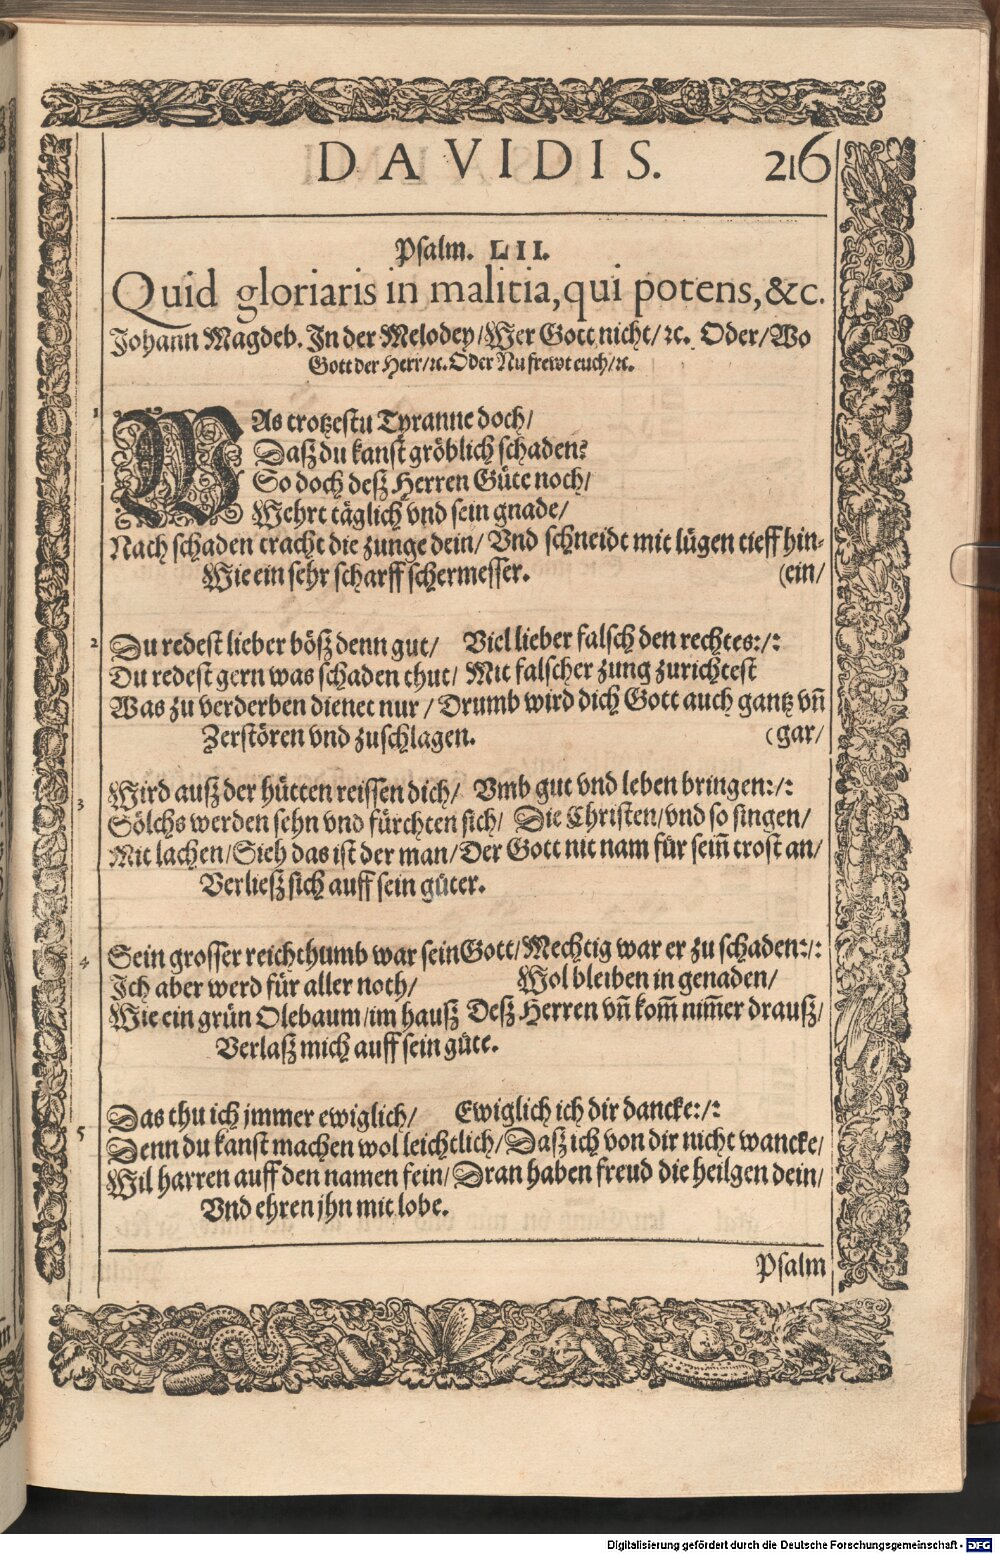 DAVIDIS. 216
Psalm. LII.
Quid gloriaris in malitia, qui potens, &c.
Johann Magdeb. In der Melodey/ Wer Gott nicht/ ꝛc. Oder/ Wo
Gott der Herr/ ꝛc. Oder Nu frewt euch/ ꝛc.
1 WAs trotzestu Tyranne doch/
Daß du kanst gröblich schaden?
So doch deß Herren Güte noch/
Wehrt täglich vnd sein gnade/
Nach schaden tracht die zunge dein/ Vnd schneidt mit lügen tieff hin-
Wie ein sehr scharff schermesser. (ein/
2 Du redest lieber böß denn gut/ Viel lieber falsch den rechtes:/:
Du redest gern was schaden thut/ Mit falscher zung zurichtest
Was zu verderben dienet nur/ Drumb wird dich Gott auch gantz vñ
Zerstören vnd zuschlagen. (gar/
3 Wird auß der hütten reissen dich/ Vmb gut vnd leben bringen:/:
Sölchs werden sehn vnd fürchten sich/ Die Christen/ vnd so singen/
Mit lachen/ Sieh das ist der man/ Der Gott nit nam für sein̄ trost an/
Verließ sich auff sein güter.
4 Sein grosser reichthumb war sein Gott/ Mechtig war er zu schaden:/:
Ich aber werd für aller noth/ Wol bleiben in genaden/
Wie ein grün Olebaum/ im hauß Deß Herren vñ kom̄ nim̄er drauß/
Verlaß mich auff sein güte.
5 Das thu ich jmmer ewiglich/ Ewiglich ich dir dancke:/:
Denn du kanst machen wol leichtlich/ Daß ich von dir nicht wancke/
Wil harren auff den namen fein/ Dran haben freud die heilgen dein/
Vnd ehren jhn mit lobe.
Psalm
Digitalisierung gefördert durch die Deutsche Forschungsgemeinschaft - DFG